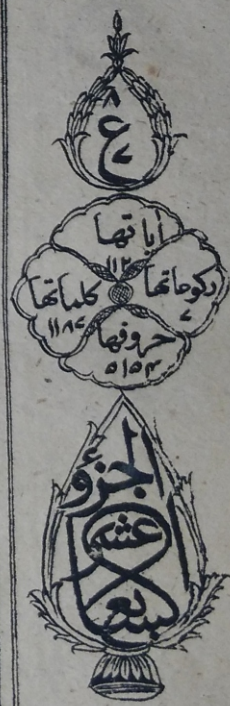 ٨
ع
٧
أياتها
١١٢
ركوعاتها
٧
كلماتها
١١٨٧
حروفها
٥١٥٤
الجزؤ
السابع
عشر